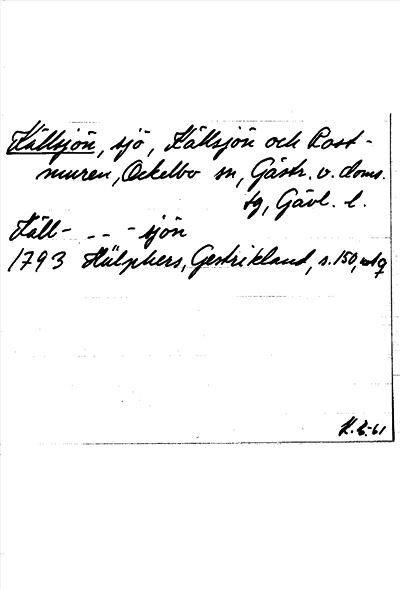 Källsjön, sjö, Källsjön och Post-
muren, Ockelbo sn, Gästr. v. doms.
tg, Gävl. l.
Käll- - - - sjön
1793 Hülphers, Gestrikland, s. 150,
H. -61